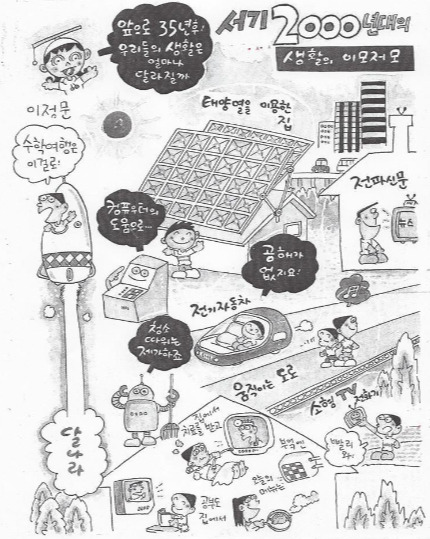 앞으로 35년후
우리들의 생활은
얼마나
달라질까
서기2000년대의
생활의 이모저모
이정문
수학여행은
이걸로!
태양열을 이용한
집
전파신문
뉴스
컴퓨우터의
도움으로…
공해가
없지요!
전기자동차
청소
따위는
제가하죠
움직이는 도로
소형 TV 전화기
빨리
와!
집에서
치료를 받고
부엌엔
오늘의
메뉴는
공부도
집에서
달나라